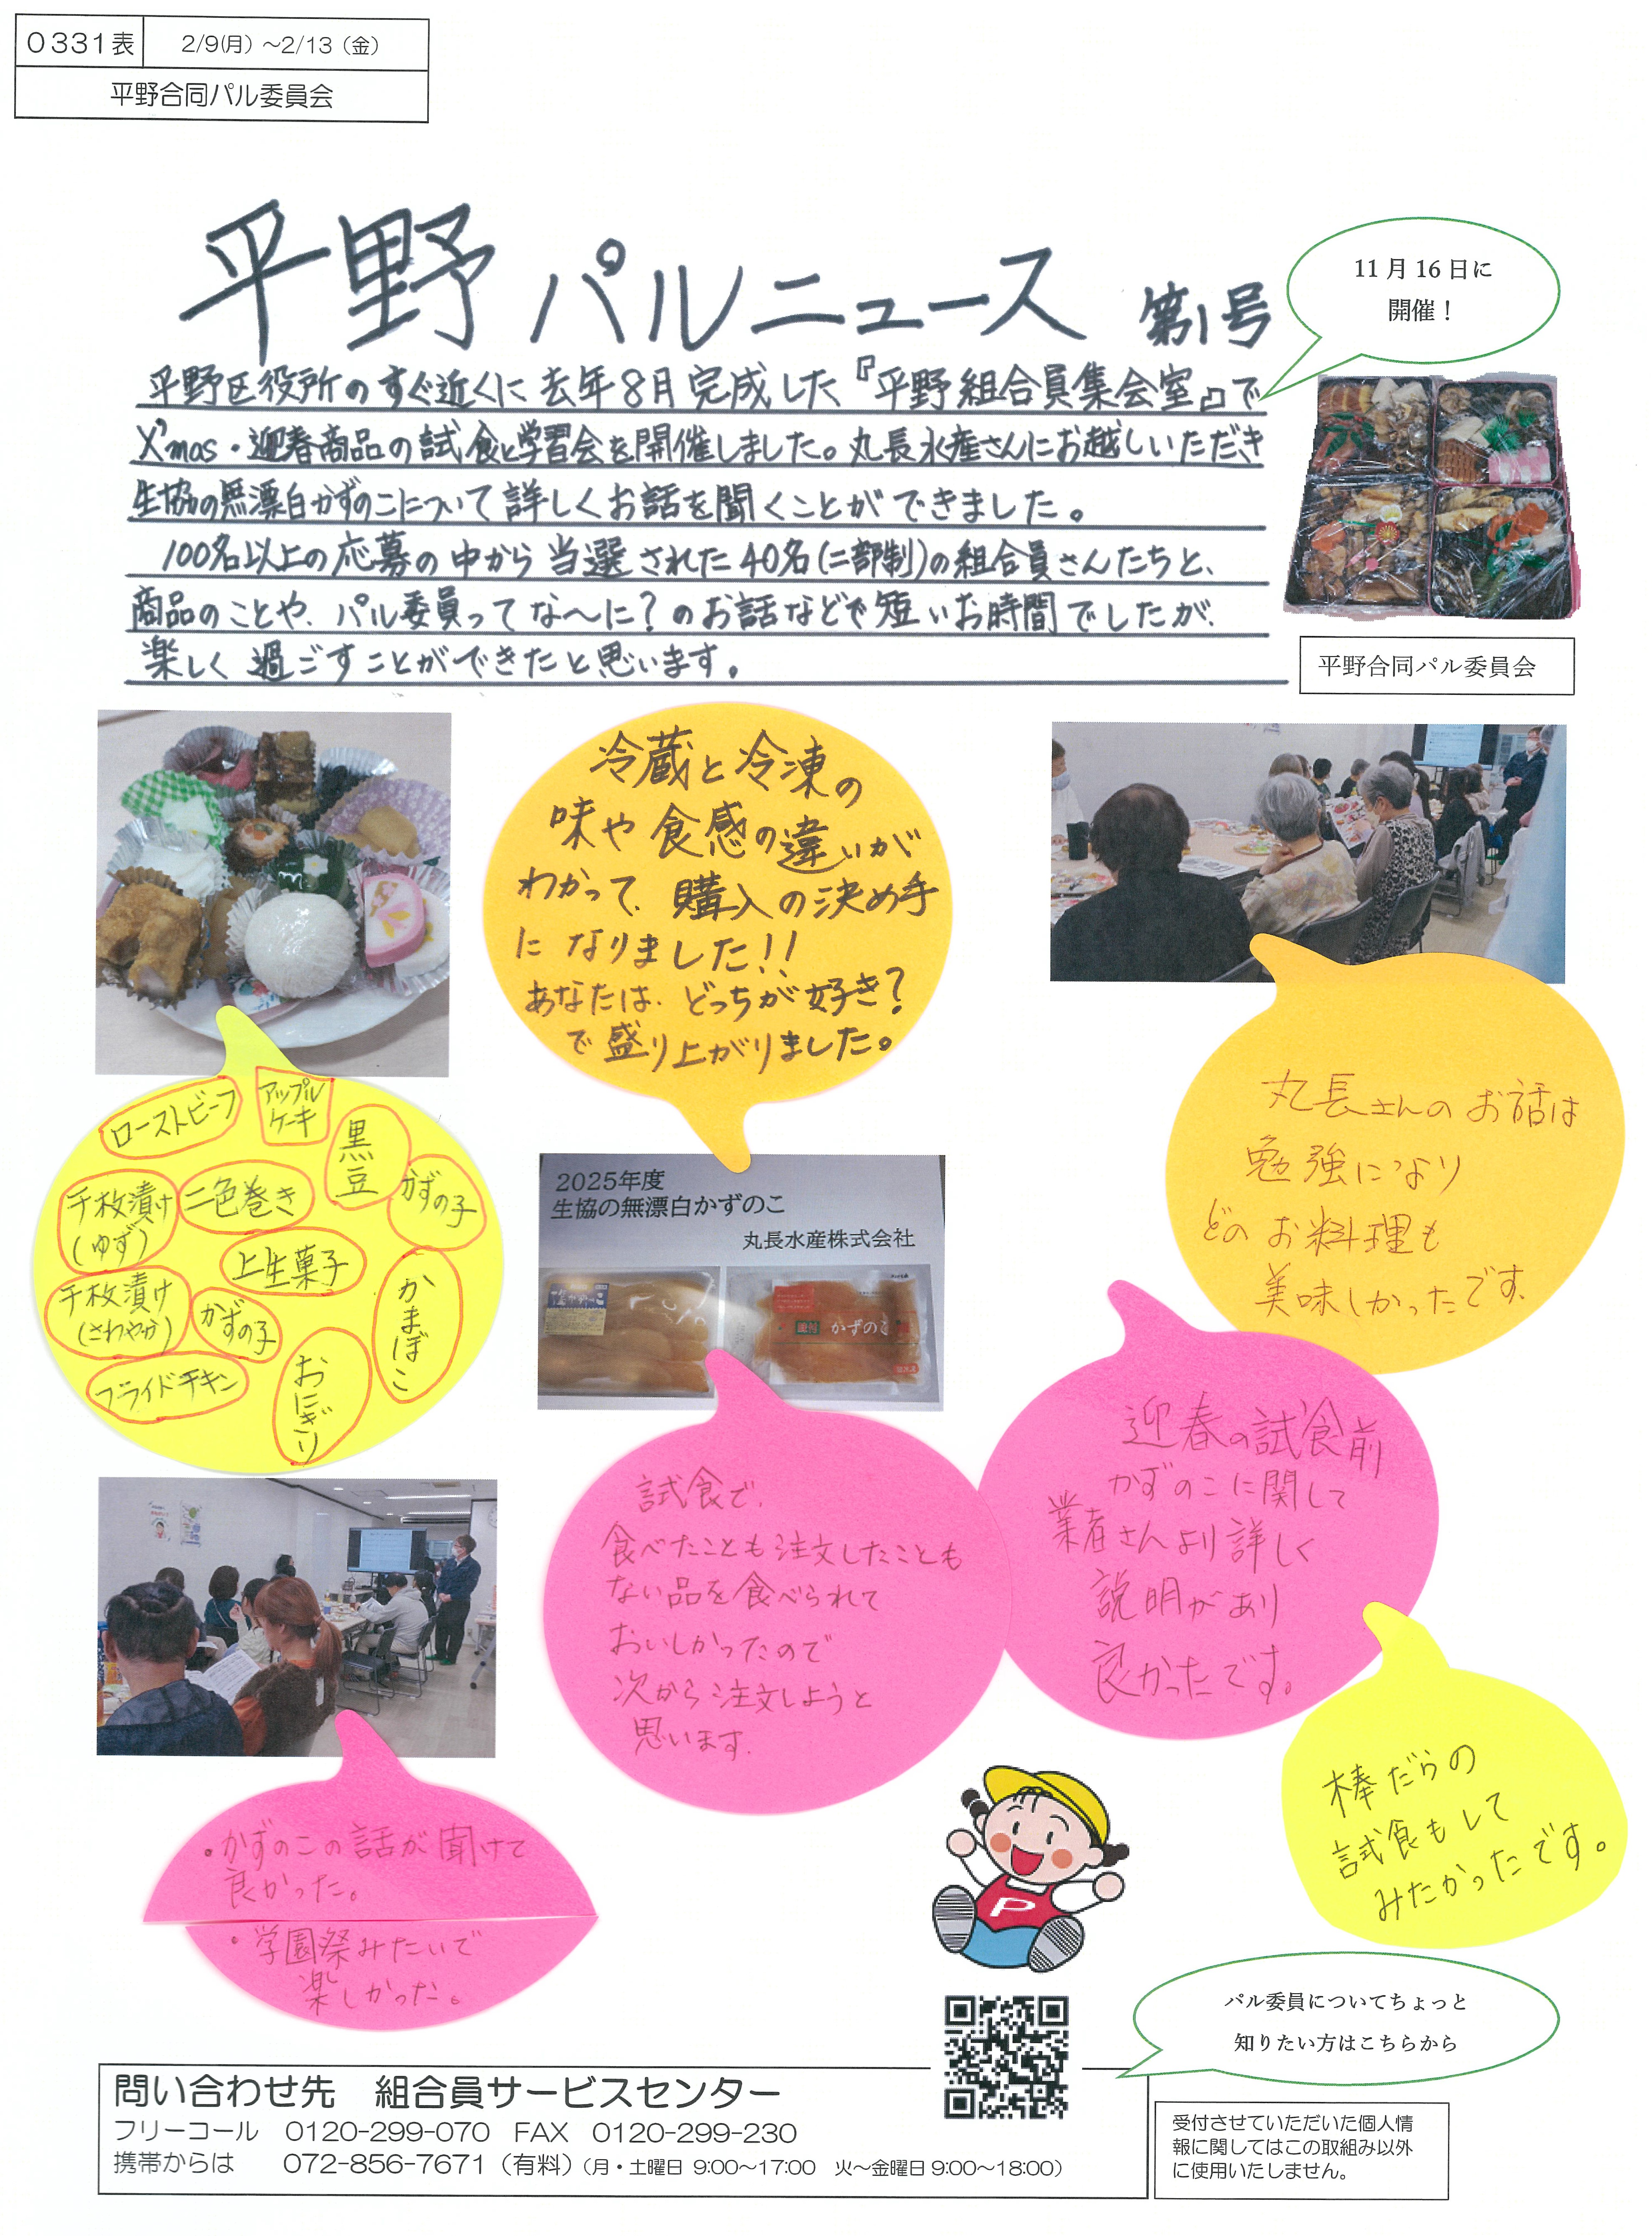 0331表
2/9(月)～2/13（金）
平野合同パル委員会
平野パルニュース 第1号
11月16日に
開催！
平野区役所のすぐ近くに去年8月完成した『平野組合員集会室』で
X'mas・迎春商品の試食と学習会を開催しました。丸長水産さんにお越しいただき
生協の無漂白かずのこについて詳しくお話を聞くことができました。
100名以上の応募の中から当選された40名(二部制)の組合員さんたちと、
商品のことや、パル委員ってな～に？のお話などで短いお時間でしたが、
楽しく過ごすことができたと思います。
平野合同パル委員会
冷蔵と冷凍の
味や食感の違いが
わかって、購入の決め手
になりました!!
あなたは、どっちが好き？
で盛り上がりました。
ローストビーフ
アップル
ケーキ
黒豆
かずの子
千枚漬け
(ゆず)
二色巻き
上生菓子
千枚漬け
(さわやか)
かずの子
かまぼこ
フライドチキン
おにぎり
2025年度
生協の無漂白かずのこ
丸長水産株式会社
かずのこ
丸長さんのお話は
勉強になり
どのお料理も
美味しかったです。
迎春の試食前
かずのこに関して
業者さんより詳しく
説明があり
良かったです。
試食で、
食べたことも注文したことも
ない品を食べられて
おいしかったので
次から注文しようと
思います。
棒だらの
試食もして
みたかったです。
・かずのこの話が聞けて
良かった。
・学園祭みたいで
楽しかった。
P
パル委員についてちょっと
知りたい方はこちらから
問い合わせ先　組合員サービスセンター
フリーコール　0120-299-070　FAX　0120-299-230
携帯からは　072-856-7671（有料）（月・土曜日 9:00～17:00　火～金曜日 9:00～18:00）
受付させていただいた個人情
報に関してはこの取組み以外
に使用いたしません。